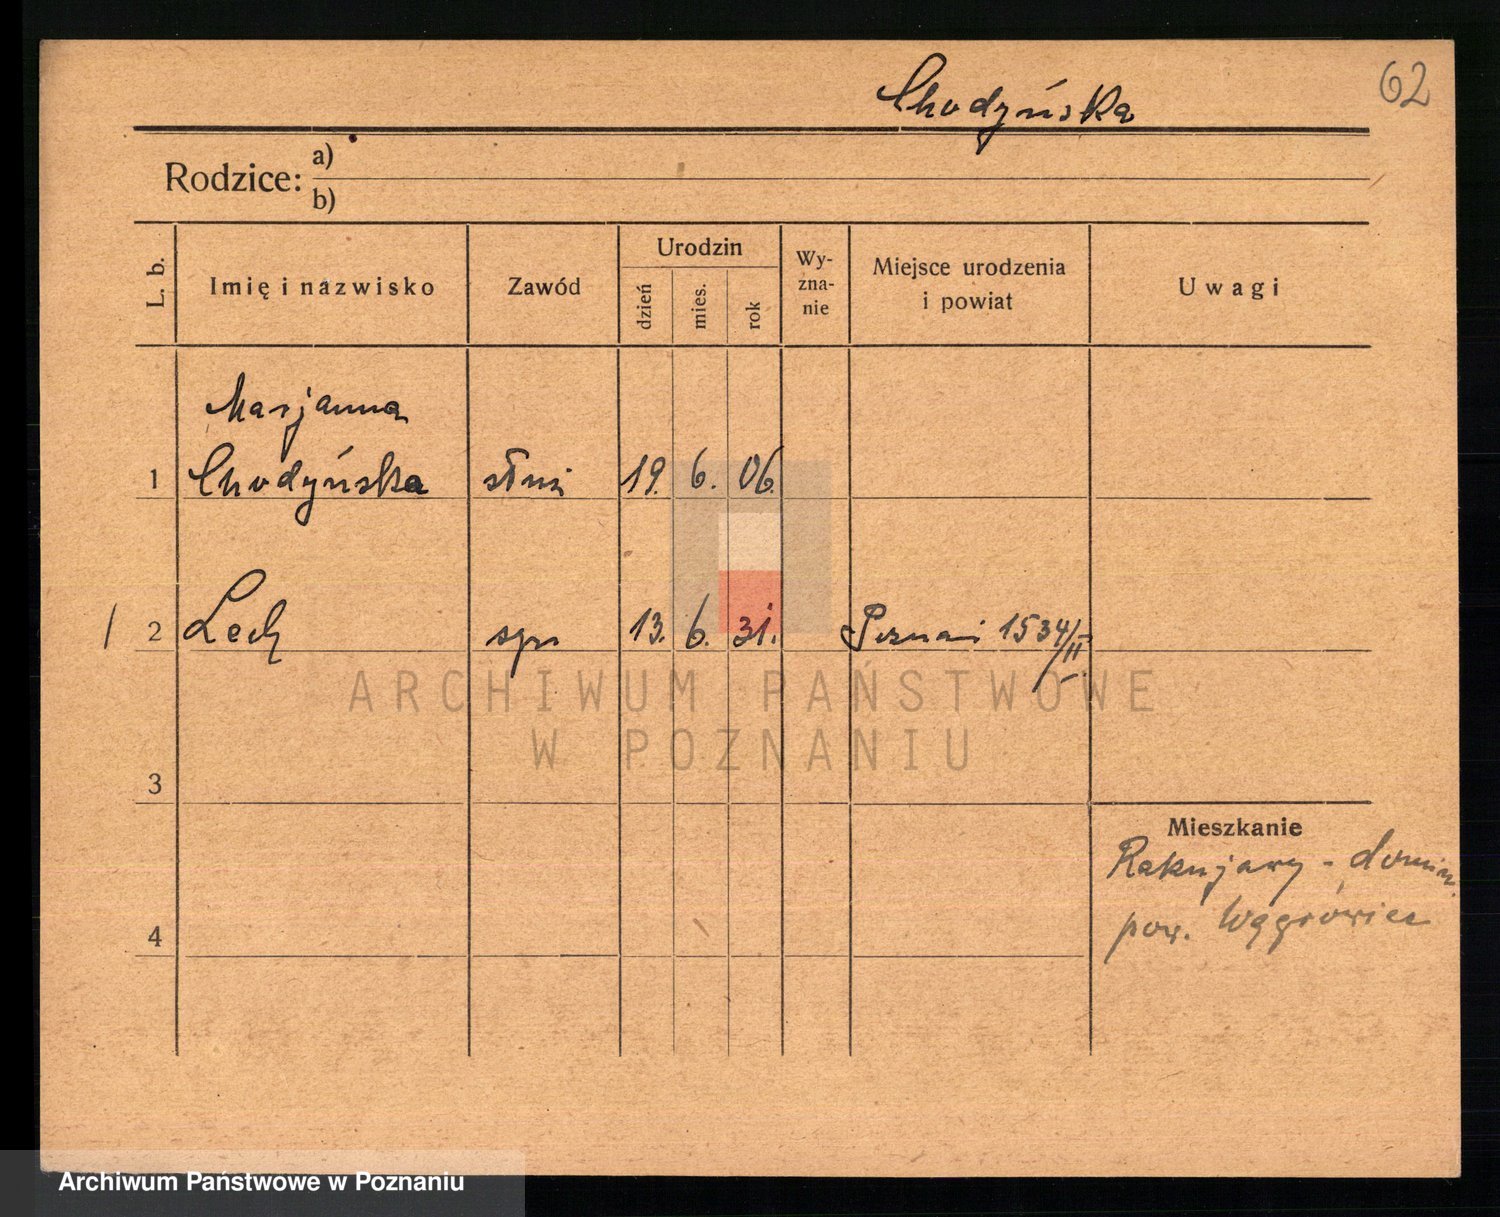 Chodyńska 62
Rodzice: a)
b)
L. b.
Imię i nazwisko
Zawód
Urodzin
dzień
mies.
rok
Wy-
zna-
nie
Miejsce urodzenia
i powiat
Uwagi
Marjanna
1 Chodyńska 19. 6. 06.
2 Lech syn 13. 6. 31. Poznań 1534/II
ARCHIWUM PAŃSTWOWE
W POZNANIU
3
Mieszkanie
Rakujady - domin.
4
pow. Wągrówiec
Archiwum Państwowe w Poznaniu